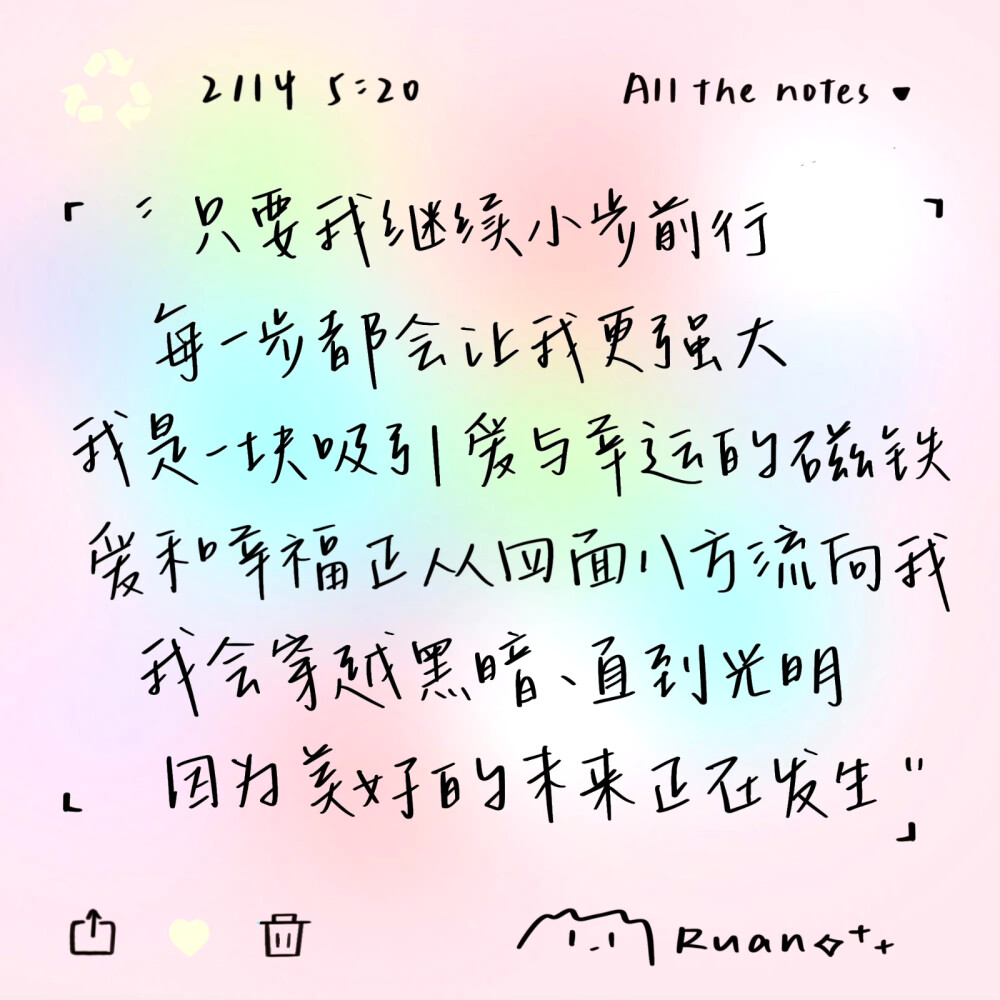 2114 5:20
All the notes
"只要我继续小步前行
每一步都会让我更强大
我是一块吸引爱与幸运的磁铁
爱和幸福正从四面八方流向我
我会穿越黑暗、直到光明
因为美好的未来正在发生"
Ruan